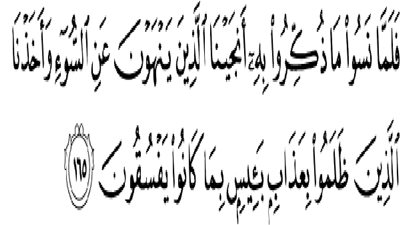 فَلَمَّا نَسُوا۟ مَا ذُكِّرُوا۟ بِهِۦٓ أَنجَيْنَا ٱلَّذِينَ يَنْهَوْنَ عَنِ ٱلسُّوٓءِ وَأَخَذْنَا
ٱلَّذِينَ ظَلَمُوا۟ بِعَذَابٍۭ بَـِٔيسٍۭ بِمَا كَانُوا۟ يَفْسُقُونَ ١٦٥